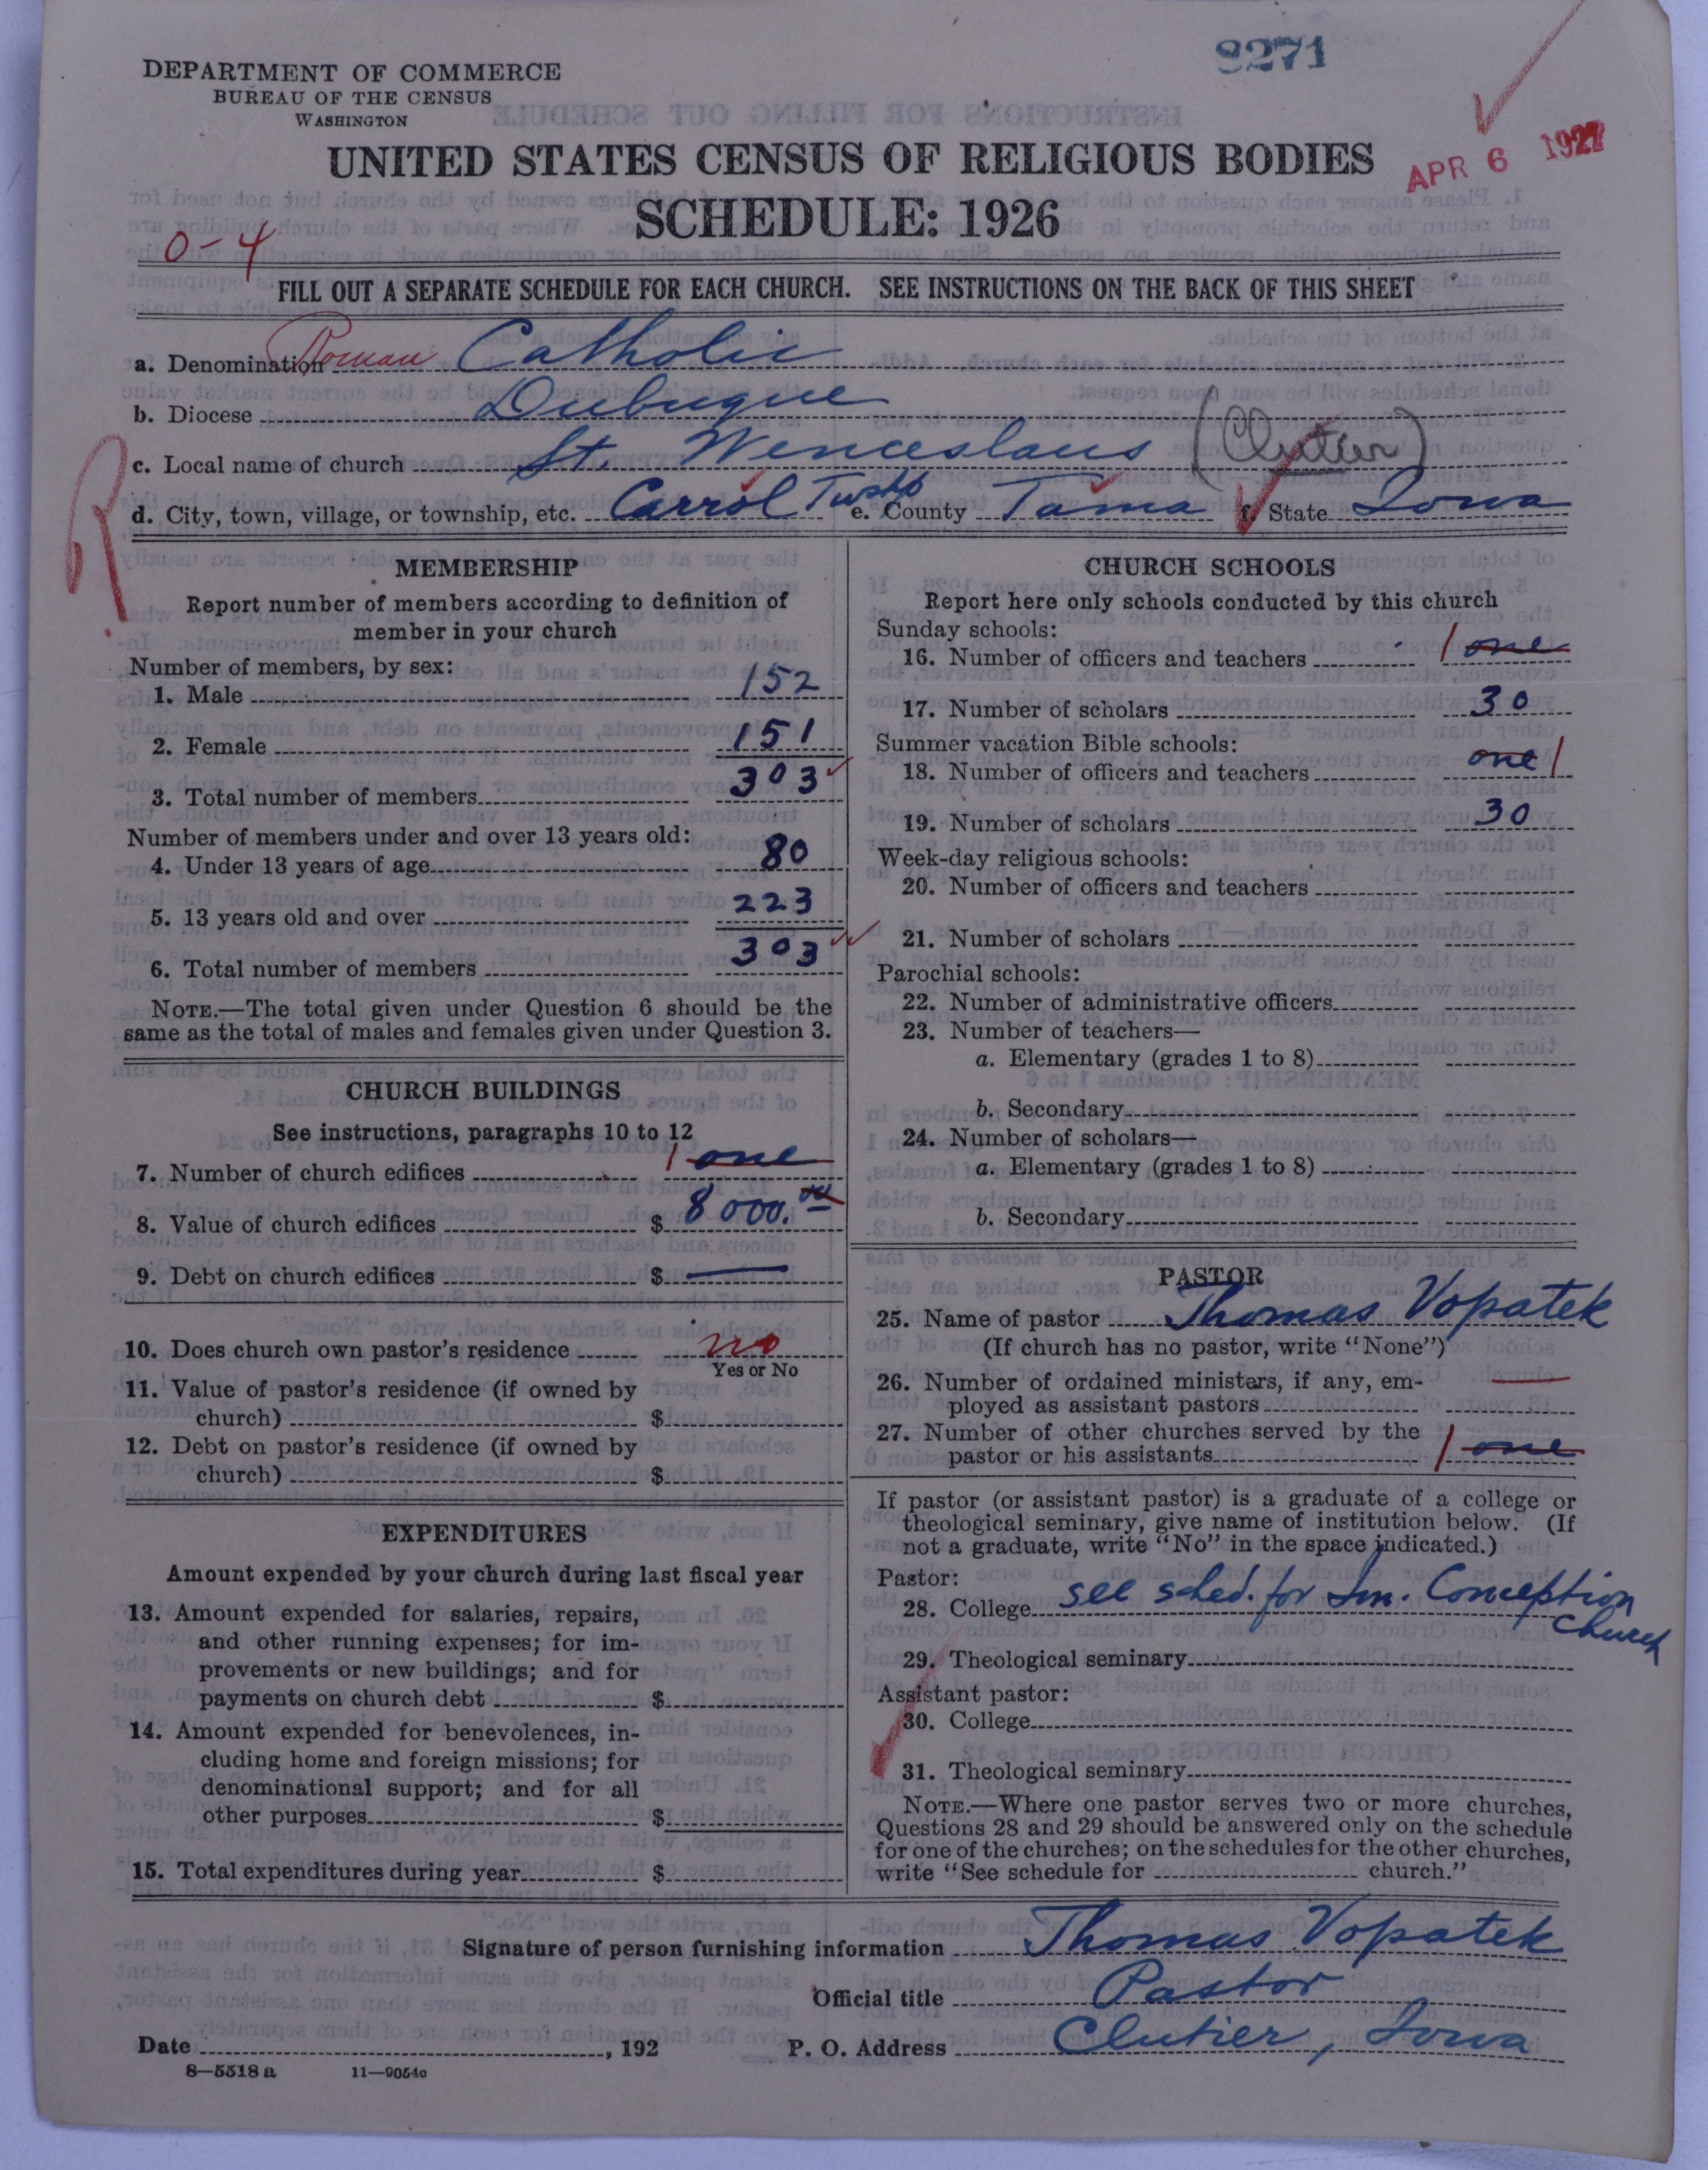 8271
DEPARTMENT OF COMMERCE
BUREAU OF THE CENSUS
WASHINGTON
UNITED STATES CENSUS OF RELIGIOUS BODIES
APR 6 1927
SCHEDULE: 1926
0-4
FILL OUT A SEPARATE SCHEDULE FOR EACH CHURCH. SEE INSTRUCTIONS ON THE BACK OF THIS SHEET
a. Denomination Roman Catholic
b. Diocese Dubuque
c. Local name of church St. Wenceslaus (Clutier)
d. City, town, village, or township, etc. Carrol Twshp e. County Tama f. State Iowa
R
MEMBERSHIP
Report number of members according to definition of
member in your church
Number of members, by sex:
1. Male 152
2. Female 151
3. Total number of members 303
Number of members under and over 13 years old:
4. Under 13 years of age 80
5. 13 years old and over 223
6. Total number of members 303
NOTE.—The total given under Question 6 should be the
same as the total of males and females given under Question 3.
CHURCH BUILDINGS
See instructions, paragraphs 10 to 12
7. Number of church edifices 1 one
8. Value of church edifices $ 8000.00
9. Debt on church edifices $ —
10. Does church own pastor's residence no
Yes or No
11. Value of pastor's residence (if owned by
church) $
12. Debt on pastor's residence (if owned by
church) $
EXPENDITURES
Amount expended by your church during last fiscal year
13. Amount expended for salaries, repairs,
and other running expenses; for im-
provements or new buildings; and for
payments on church debt $
14. Amount expended for benevolences, in-
cluding home and foreign missions; for
denominational support; and for all
other purposes $
15. Total expenditures during year $
CHURCH SCHOOLS
Report here only schools conducted by this church
Sunday schools:
16. Number of officers and teachers 1 one
17. Number of scholars 30
Summer vacation Bible schools:
18. Number of officers and teachers one 1
19. Number of scholars 30
Week-day religious schools:
20. Number of officers and teachers
21. Number of scholars
Parochial schools:
22. Number of administrative officers
23. Number of teachers—
a. Elementary (grades 1 to 8)
b. Secondary
24. Number of scholars—
a. Elementary (grades 1 to 8)
b. Secondary
PASTOR
25. Name of pastor Thomas Vopatek
(If church has no pastor, write "None")
26. Number of ordained ministers, if any, em-
ployed as assistant pastors —
27. Number of other churches served by the
pastor or his assistants 1 one
If pastor (or assistant pastor) is a graduate of a college or
theological seminary, give name of institution below. (If
not a graduate, write "No" in the space indicated.)
Pastor:
28. College see sched. for Im. Conception
Church
29. Theological seminary
Assistant pastor:
30. College
31. Theological seminary
NOTE.—Where one pastor serves two or more churches,
Questions 28 and 29 should be answered only on the schedule
for one of the churches; on the schedules for the other churches,
write "See schedule for church."
Signature of person furnishing information Thomas Vopatek
Official title Pastor
Date , 192 P. O. Address Clutier, Iowa
8—5518 a 11—9054c